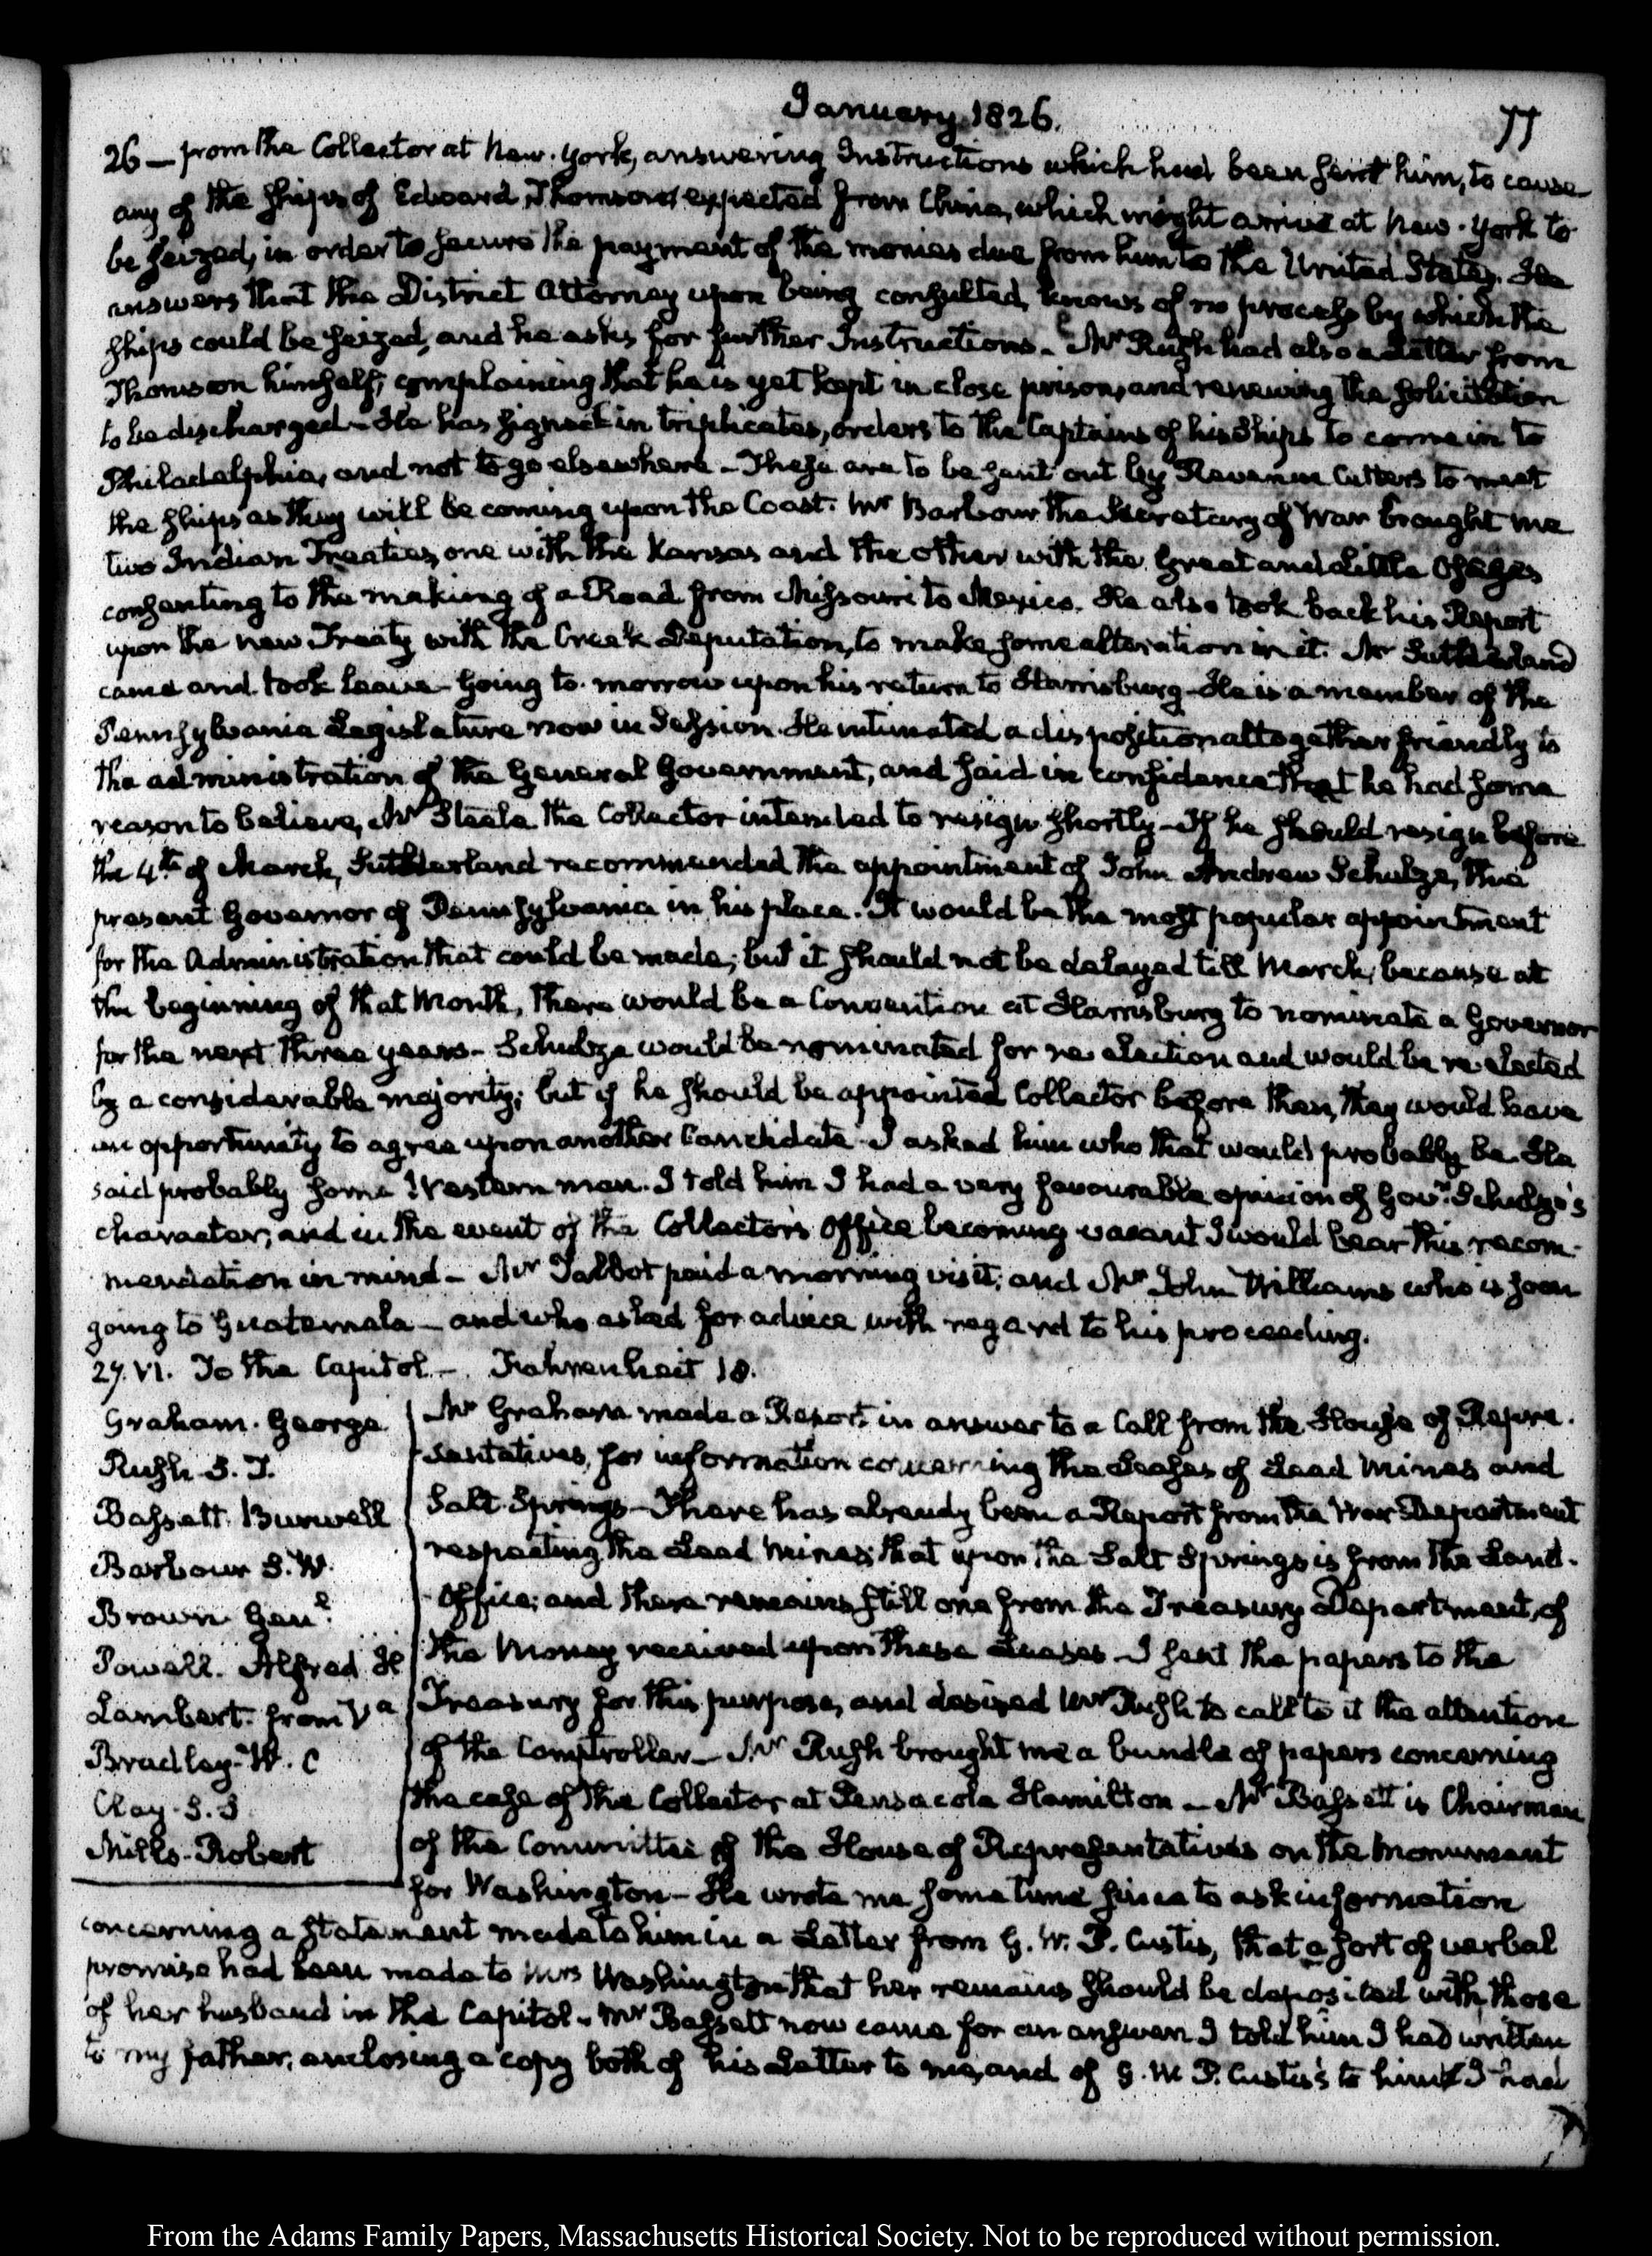 January 1826.
77
26 — from the Collector at New-York, answering Instructions which had been sent him, to cause
any of the ships of Edward Thomson, expected from China, which might arrive at New-York to
be seized, in order to secure the payment of the monies due from him to the United States. He
answers that the District Attorney upon being consulted, knows of no process by which the
ships could be seized, and he asks for further Instructions. Mr Rush had also a Letter from
Thomson himself, complaining that he is yet kept in close prison, and renewing the solicitation
to be discharged. He has signed in triplicates, orders to the Captains of his Ships to come in to
Philadelphia, and not to go elsewhere. These are to be sent out by Revenue Cutters to meet
the ships as they will be coming upon the Coast. Mr Barbour the Secretary of War brought me
two Indian Treaties, one with the Kansas and the other with the Great and Little Osages
consenting to the making of a Road from Missouri to Mexico. He also took back his Report
upon the new Treaty with the Creek Deputation, to make some alteration in it. Mr Sutherland
came and took leave — going to-morrow upon his return to Harrisburg. He is a member of the
Pennsylvania Legislature now in Session. He intimated a disposition altogether friendly to
the administration of the General Government, and said in confidence that he had some
reason to believe, Mr Steele the Collector intended to resign shortly — If he should resign before
the 4th of March, Sutherland recommended the appointment of John Andrew Schulze, the
present Governor of Pennsylvania in his place. It would be the most popular appointment
for the Administration that could be made; but it should not be delayed till March, because at
the beginning of that Month, there would be a Convention at Harrisburg to nominate a Governor
for the next three years. Schulze would be nominated for re-election and would be re-elected
by a considerable majority; but if he should be appointed Collector before then, they would have
an opportunity to agree upon another Candidate. I asked him who that would probably be. He
said probably some Western man. I told him I had a very favourable opinion of Govr. Schulze's
character; and in the event of the Collector's Office becoming vacant I would bear this recom-
mendation in mind — Mr Talbot paid a morning visit; and Mr John Williams who is soon
going to Guatemala — and who asked for advice with regard to his proceeding.
27. VI. To the Capitol — Fahrenheit 18.
Graham. George
Rush S. T.
Bassett. Burwell
Barbour S. W.
Brown Genl.
Powell. Alfred H
Lambert. from Va
Bradley- W. C
Clay- S. S
Mills- Robert
Mr Graham made a Report in answer to a Call from the House of Repre-
sentatives, for information concerning the Leases of Lead Mines and
Salt Springs — There has already been a Report from the War Department
respecting the Lead Mines; that upon the Salt Springs is from the Land-
Office; and there remains still one from the Treasury Department, of
the Money received upon these Leases. I sent the papers to the
Treasury for this purpose, and desired Mr Rush to call to it the attention
of the Comptroller — Mr Rush brought me a bundle of papers concerning
the case of the Collector at Pensacola Hamilton — Mr Bassett is Chairman
of the Committee of the House of Representatives on the Monument
for Washington — He wrote me some time since to ask information
concerning a statement made to him in a Letter from G. W. P. Custis, that a sort of verbal
promise had been made to Mrs Washington that her remains should be deposited with those
of her husband in the Capitol. Mr Bassett now came for an answer. I told him I had written
to my father, enclosing a copy both of his Letter to me, and of G. W. P. Custis's to him & I had
From the Adams Family Papers, Massachusetts Historical Society. Not to be reproduced without permission.